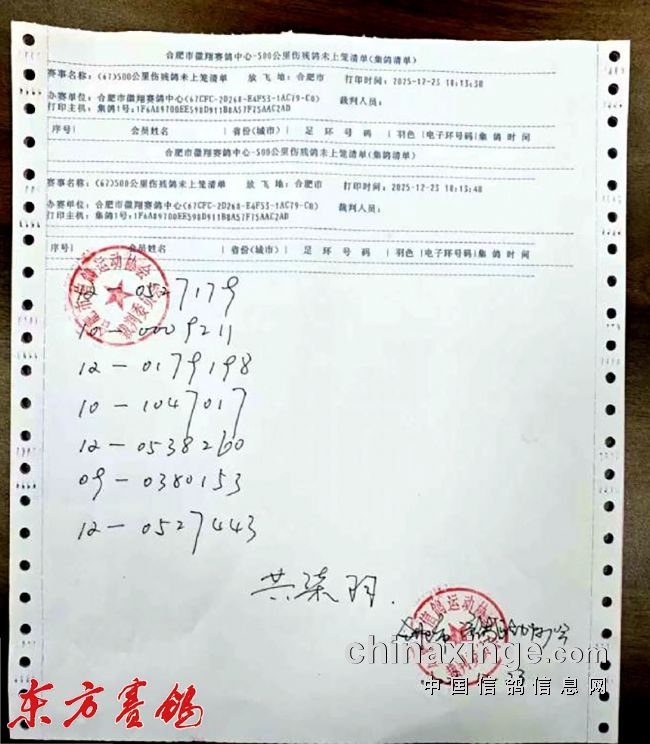 合肥市徽翔赛鸽中心-500公里伤残鸽未上笼清单(集鸽清单)
赛事名称: (67)500公里伤残鸽未上笼清单 放飞地: 合肥市 打印时间: 2025-12-23 18:13:30
办赛单位: 合肥市徽翔赛鸽中心(67CFC-2D268-E4F53-1AC79-C0) 裁判人员:
打印主机: 集鸽1号:1F6A89700EE598D911B8A57F25AAC2AD
序号| 会员姓名 | 省份(城市) | 足 环 号 码 | 羽色 |电子环号码|集 鸽 时 间
合肥市徽翔赛鸽中心-500公里伤残鸽未上笼清单(集鸽清单)
赛事名称: (67)500公里伤残鸽未上笼清单 放飞地: 合肥市 打印时间: 2025-12-23 18:13:48
办赛单位: 合肥市徽翔赛鸽中心(67CFC-2D268-E4F53-1AC79-C0) 裁判人员:
打印主机: 集鸽1号:1F6A89700EE598D911B8A57F25AAC2AD
序号| 会员姓名 | 省份(城市) | 足 环 号 码 | 羽色 |电子环号码|集 鸽 时 间
合肥市信鸽运动协会
裁判委员会
12-0527179
10-0009211
12-0179198
10-1047017
12-0538260
09-0380153
12-0527443
共柒羽.
信鸽运动协会
chinaxinge.com
中国信鸽信息网
东方赛鸽